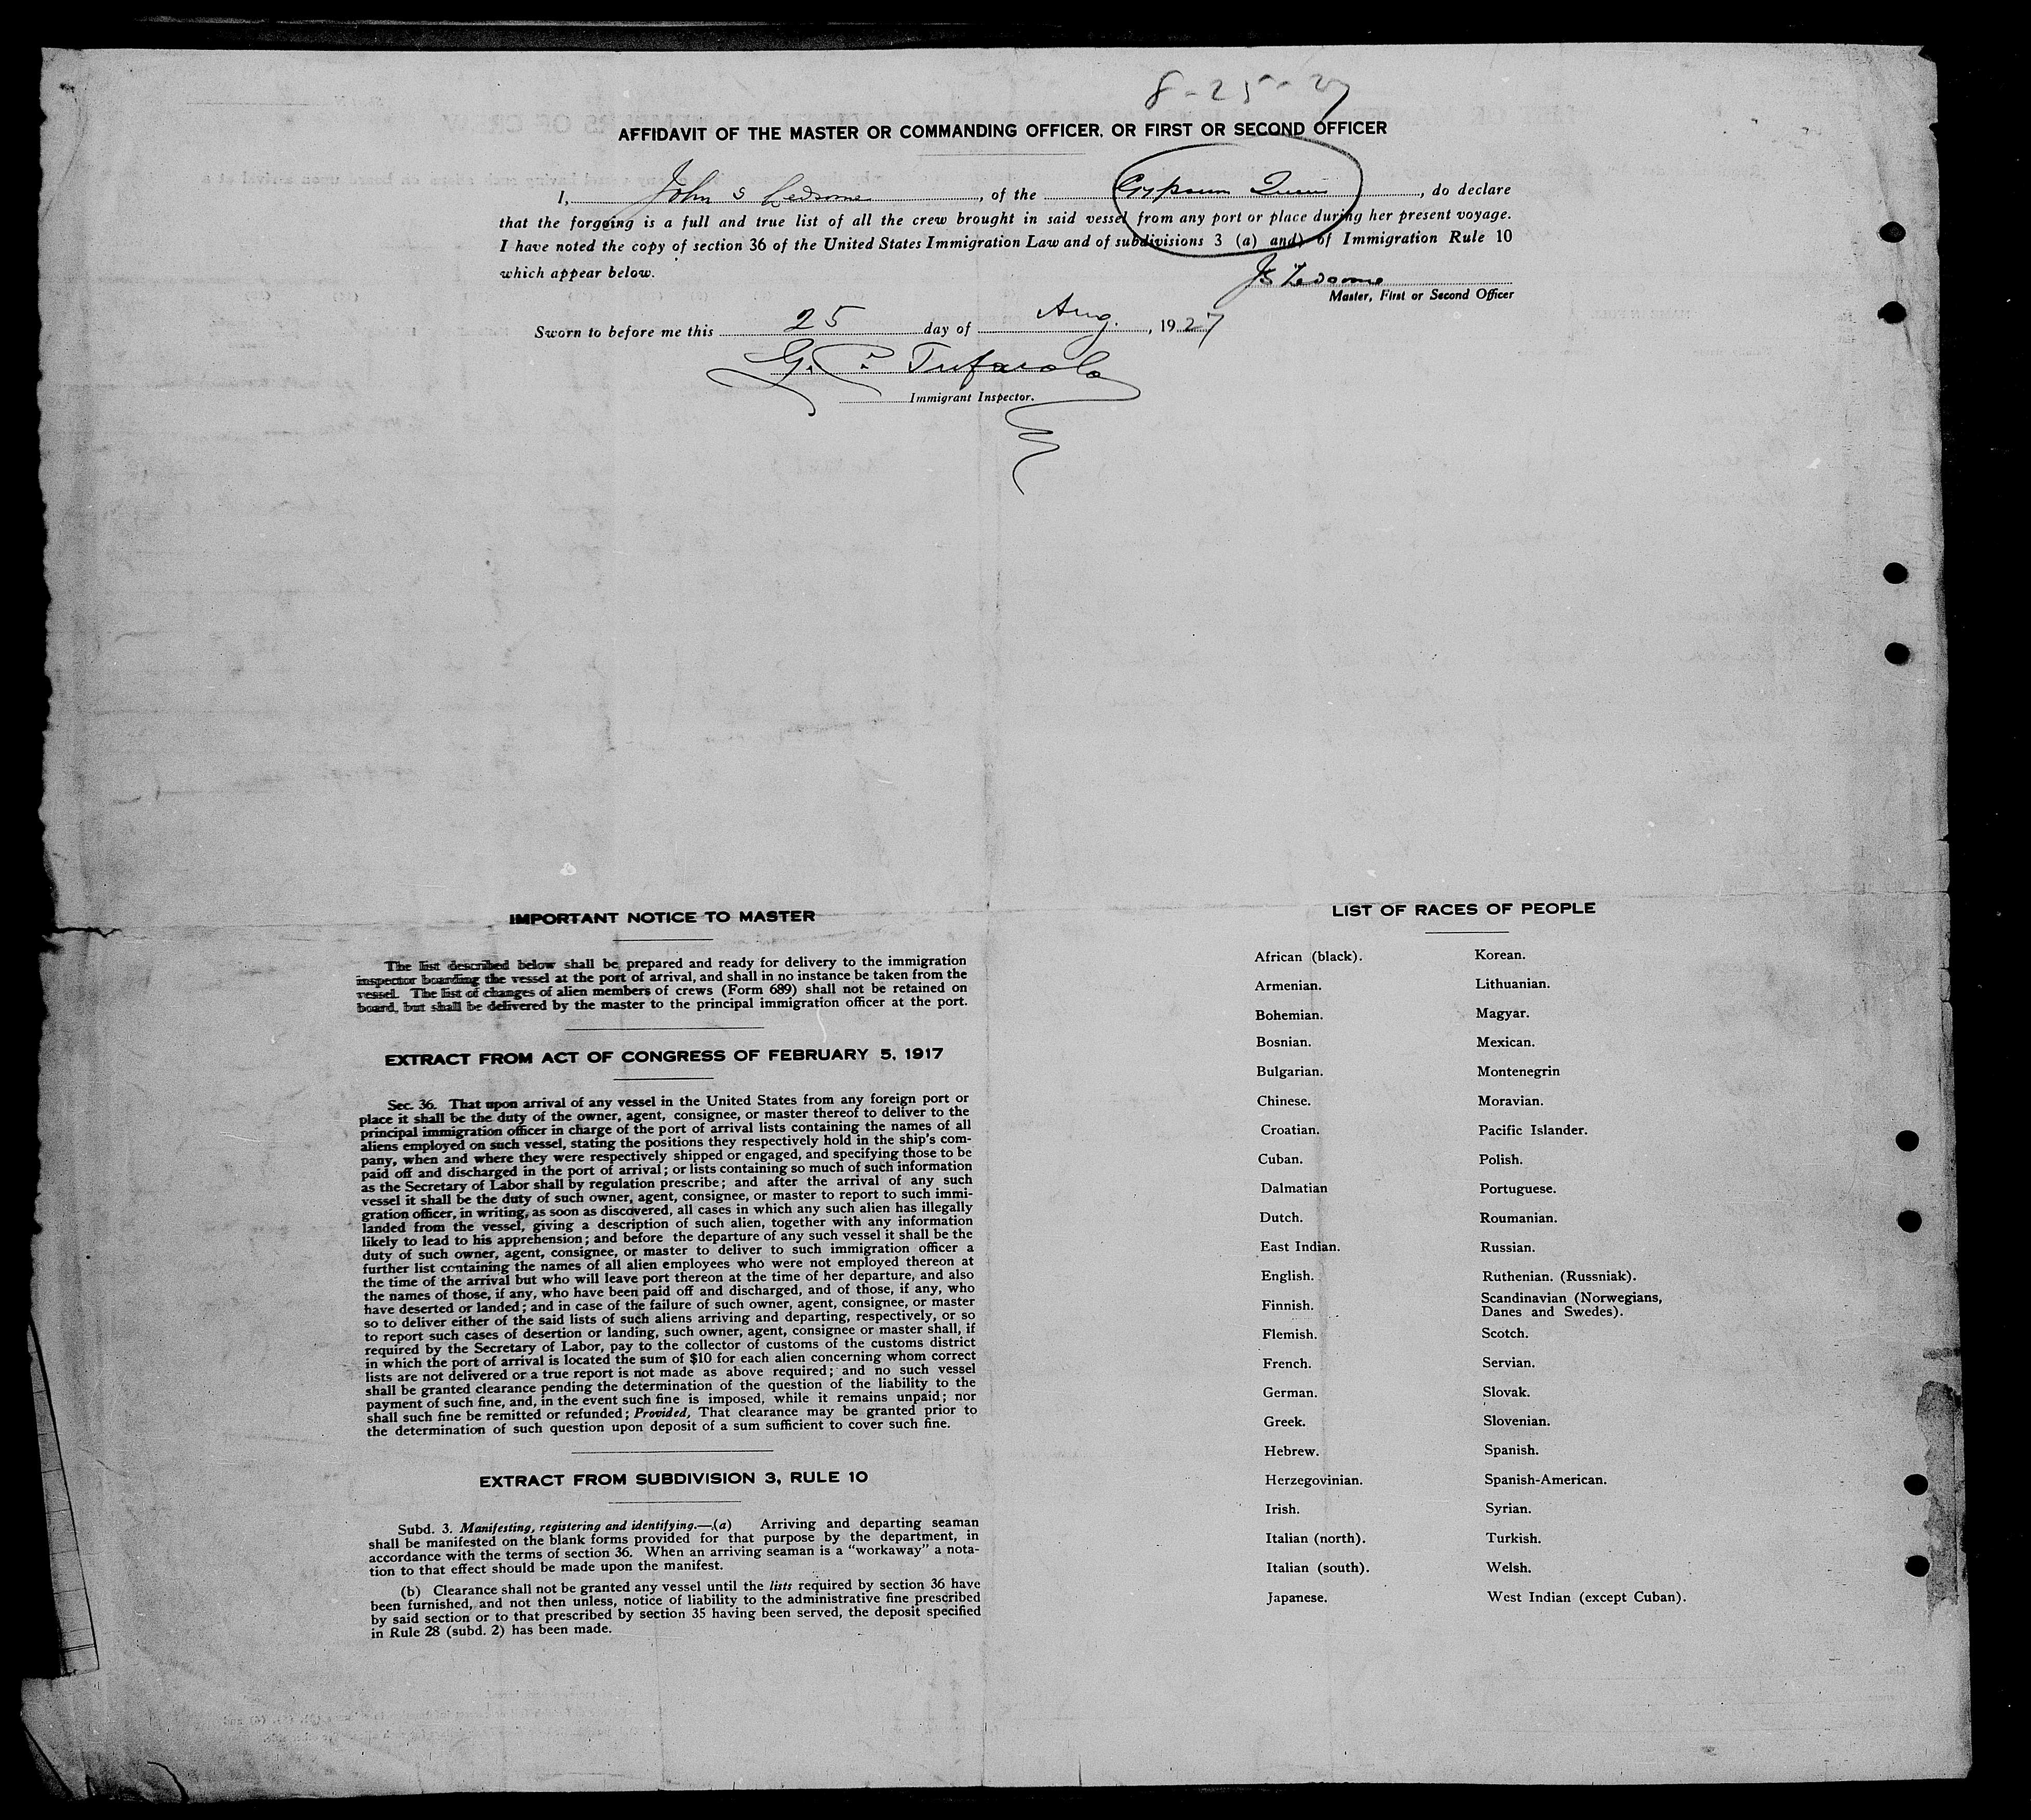 8-25-27
AFFIDAVIT OF THE MASTER OR COMMANDING OFFICER, OR FIRST OR SECOND OFFICER
I, John S , of the Gypsum Queen , do declare
that the forgoing is a full and true list of all the crew brought in said vessel from any port or place during her present voyage.
I have noted the copy of section 36 of the United States Immigration Law and of subdivisions 3 (a) and) of Immigration Rule 10
which appear below.
Master, First or Second Officer
Sworn to before me this 25 day of Aug. , 1927
G. P.
Immigrant Inspector.
IMPORTANT NOTICE TO MASTER
The list described below shall be prepared and ready for delivery to the immigration
inspector boarding the vessel at the port of arrival, and shall in no instance be taken from the
vessel. The list of changes of alien members of crews (Form 689) shall not be retained on
board, but shall be delivered by the master to the principal immigration officer at the port.
EXTRACT FROM ACT OF CONGRESS OF FEBRUARY 5, 1917
Sec. 36. That upon arrival of any vessel in the United States from any foreign port or
place it shall be the duty of the owner, agent, consignee, or master thereof to deliver to the
principal immigration officer in charge of the port of arrival lists containing the names of all
aliens employed on such vessel, stating the positions they respectively hold in the ship's com-
pany, when and where they were respectively shipped or engaged, and specifying those to be
paid off and discharged in the port of arrival; or lists containing so much of such information
as the Secretary of Labor shall by regulation prescribe; and after the arrival of any such
vessel it shall be the duty of such owner, agent, consignee, or master to report to such immi-
gration officer, in writing, as soon as discovered, all cases in which any such alien has illegally
landed from the vessel, giving a description of such alien, together with any information
likely to lead to his apprehension; and before the departure of any such vessel it shall be the
duty of such owner, agent, consignee, or master to deliver to such immigration officer a
further list containing the names of all alien employees who were not employed thereon at
the time of the arrival but who will leave port thereon at the time of her departure, and also
the names of those, if any, who have been paid off and discharged, and of those, if any, who
have deserted or landed; and in case of the failure of such owner, agent, consignee, or master
so to deliver either of the said lists of such aliens arriving and departing, respectively, or so
to report such cases of desertion or landing, such owner, agent, consignee or master shall, if
required by the Secretary of Labor, pay to the collector of customs of the customs district
in which the port of arrival is located the sum of $10 for each alien concerning whom correct
lists are not delivered or a true report is not made as above required; and no such vessel
shall be granted clearance pending the determination of the question of the liability to the
payment of such fine, and, in the event such fine is imposed, while it remains unpaid; nor
shall such fine be remitted or refunded; Provided, That clearance may be granted prior to
the determination of such question upon deposit of a sum sufficient to cover such fine.
EXTRACT FROM SUBDIVISION 3, RULE 10
Subd. 3. Manifesting, registering and identifying.—(a) Arriving and departing seaman
shall be manifested on the blank forms provided for that purpose by the department, in
accordance with the terms of section 36. When an arriving seaman is a "workaway" a nota-
tion to that effect should be made upon the manifest.
(b) Clearance shall not be granted any vessel until the lists required by section 36 have
been furnished, and not then unless, notice of liability to the administrative fine prescribed
by said section or to that prescribed by section 35 having been served, the deposit specified
in Rule 28 (subd. 2) has been made.
LIST OF RACES OF PEOPLE
African (black).
Armenian.
Bohemian.
Bosnian.
Bulgarian.
Chinese.
Croatian.
Cuban.
Dalmatian
Dutch.
East Indian.
English.
Finnish.
Flemish.
French.
German.
Greek.
Hebrew.
Herzegovinian.
Irish.
Italian (north).
Italian (south).
Japanese.
Korean.
Lithuanian.
Magyar.
Mexican.
Montenegrin
Moravian.
Pacific Islander.
Polish.
Portuguese.
Roumanian.
Russian.
Ruthenian. (Russniak).
Scandinavian (Norwegians,
Danes and Swedes).
Scotch.
Servian.
Slovak.
Slovenian.
Spanish.
Spanish-American.
Syrian.
Turkish.
Welsh.
West Indian (except Cuban).